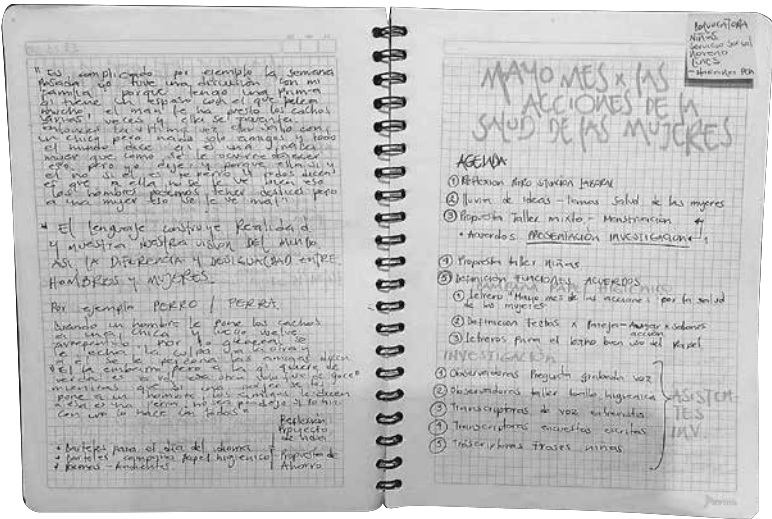 "Es complicado por ejemplo la semana
pasada yo tuve una discusión con mi
familia, porque tengo una prima
y tiene un esposo con el que pelea
mucho, el man le ha puesto los cachos
varias veces y ella se
entonces la última vez ella salió con
un chico pero nada solo amigos y todo
el mundo dice en es una
mujer que como se le ocurre
eso, pero yo dije y porque ella si y
el no si el es perro y todos dicen
es que a ella no se le ve bien eso
los hombres podemos tener deslices pero
a una mujer eso se le ve mal"
* El lenguaje construye Realidad
y muestra nuestra visión del mundo
Así la DIFERENCIA y DESIGUALDAD ENTRE
HOMBRES y MUJERES.
Por ejemplo PERRO / PERRA.
Cuando un hombre le pone los cachos
a una chica y luego vuelve
arrepentido, por lo general se
le echa la culpa a la otra y
a él se le perdona las amigas dicen
"El la embarro pero a la que quiere de
verdad es a
mientras que si una mujer se los
pone a un hombre los amigos le dicen
"esa es una perra, no
con uno lo hace con todos"
Reflexión
Proyecto
de vida
* Carteles para el día del idioma
* Carteles campaña papel higiénico
* Poemas - Ambientes
Propuesta de
Ahorro
CONVOCATORIA
Niñas
Servicio Social
Moreno
LINES
MAYO MES x LAS
ACCIONES DE LA
SALUD DE LAS MUJERES
AGENDA
① Reflexion situación laboral
② lluvia de ideas - temas Salud de las mujeres
③ Propuesta Taller mixto - Menstruación
* Acuerdos PRESENTACIÓN INVESTIGACION
④ Propuesta taller niñas
⑤ Definición FUNCIONES ACUERDOS
CAMPAÑA PAPEL HIGIENICO
① letrero "Mayo mes de las acciones por la salud
de las mujeres
② Definicion fechas x Pareja - salones
acción
③ letreros para el baño buen uso del Papel
INVESTIGACIÓN
① Observadoras Pregunta grabando voz
② Observadoras taller toalla higienica
③ Transcriptoras de voz
④ Transcriptoras encuestas escritas
⑤ Trascriptoras frases niñas
ASISTEN-
TES
INV.